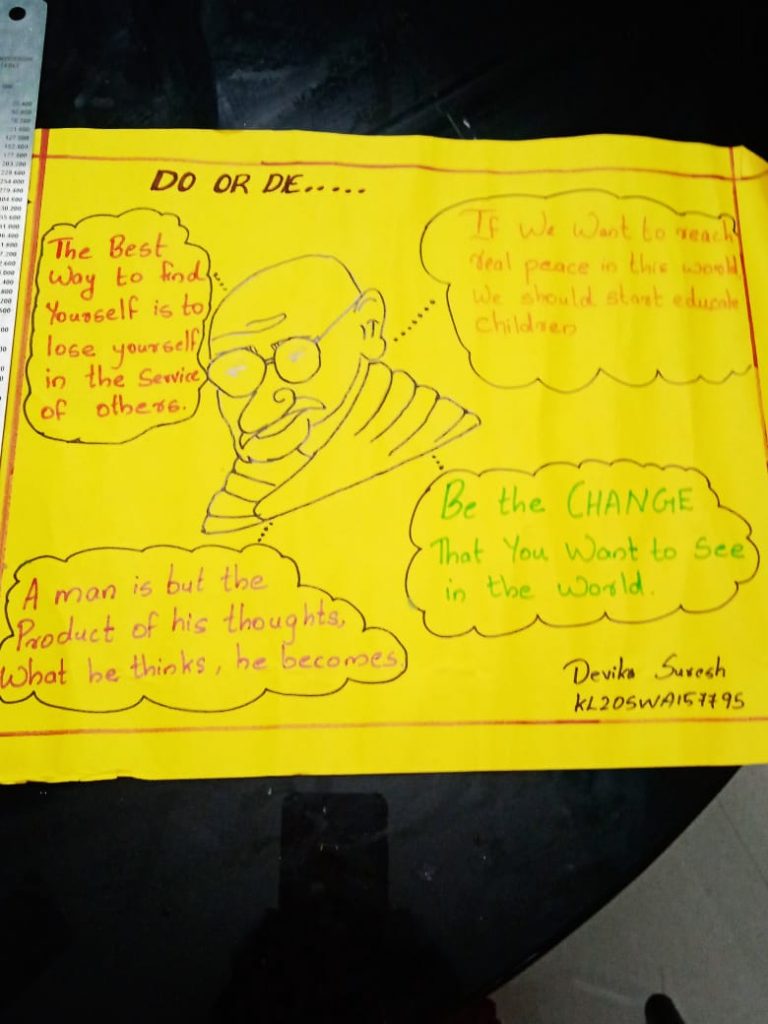 DO OR DIE.....
The Best
Way to find
Yourself is to
lose yourself
in the Service
of others.
If We Want to reach
real peace in this world
We should start educate
children
Be the CHANGE
That You Want to See
in the World.
A man is but the
Product of his thoughts,
What he thinks, he becomes.
Devika Suresh
KL20SWA157795